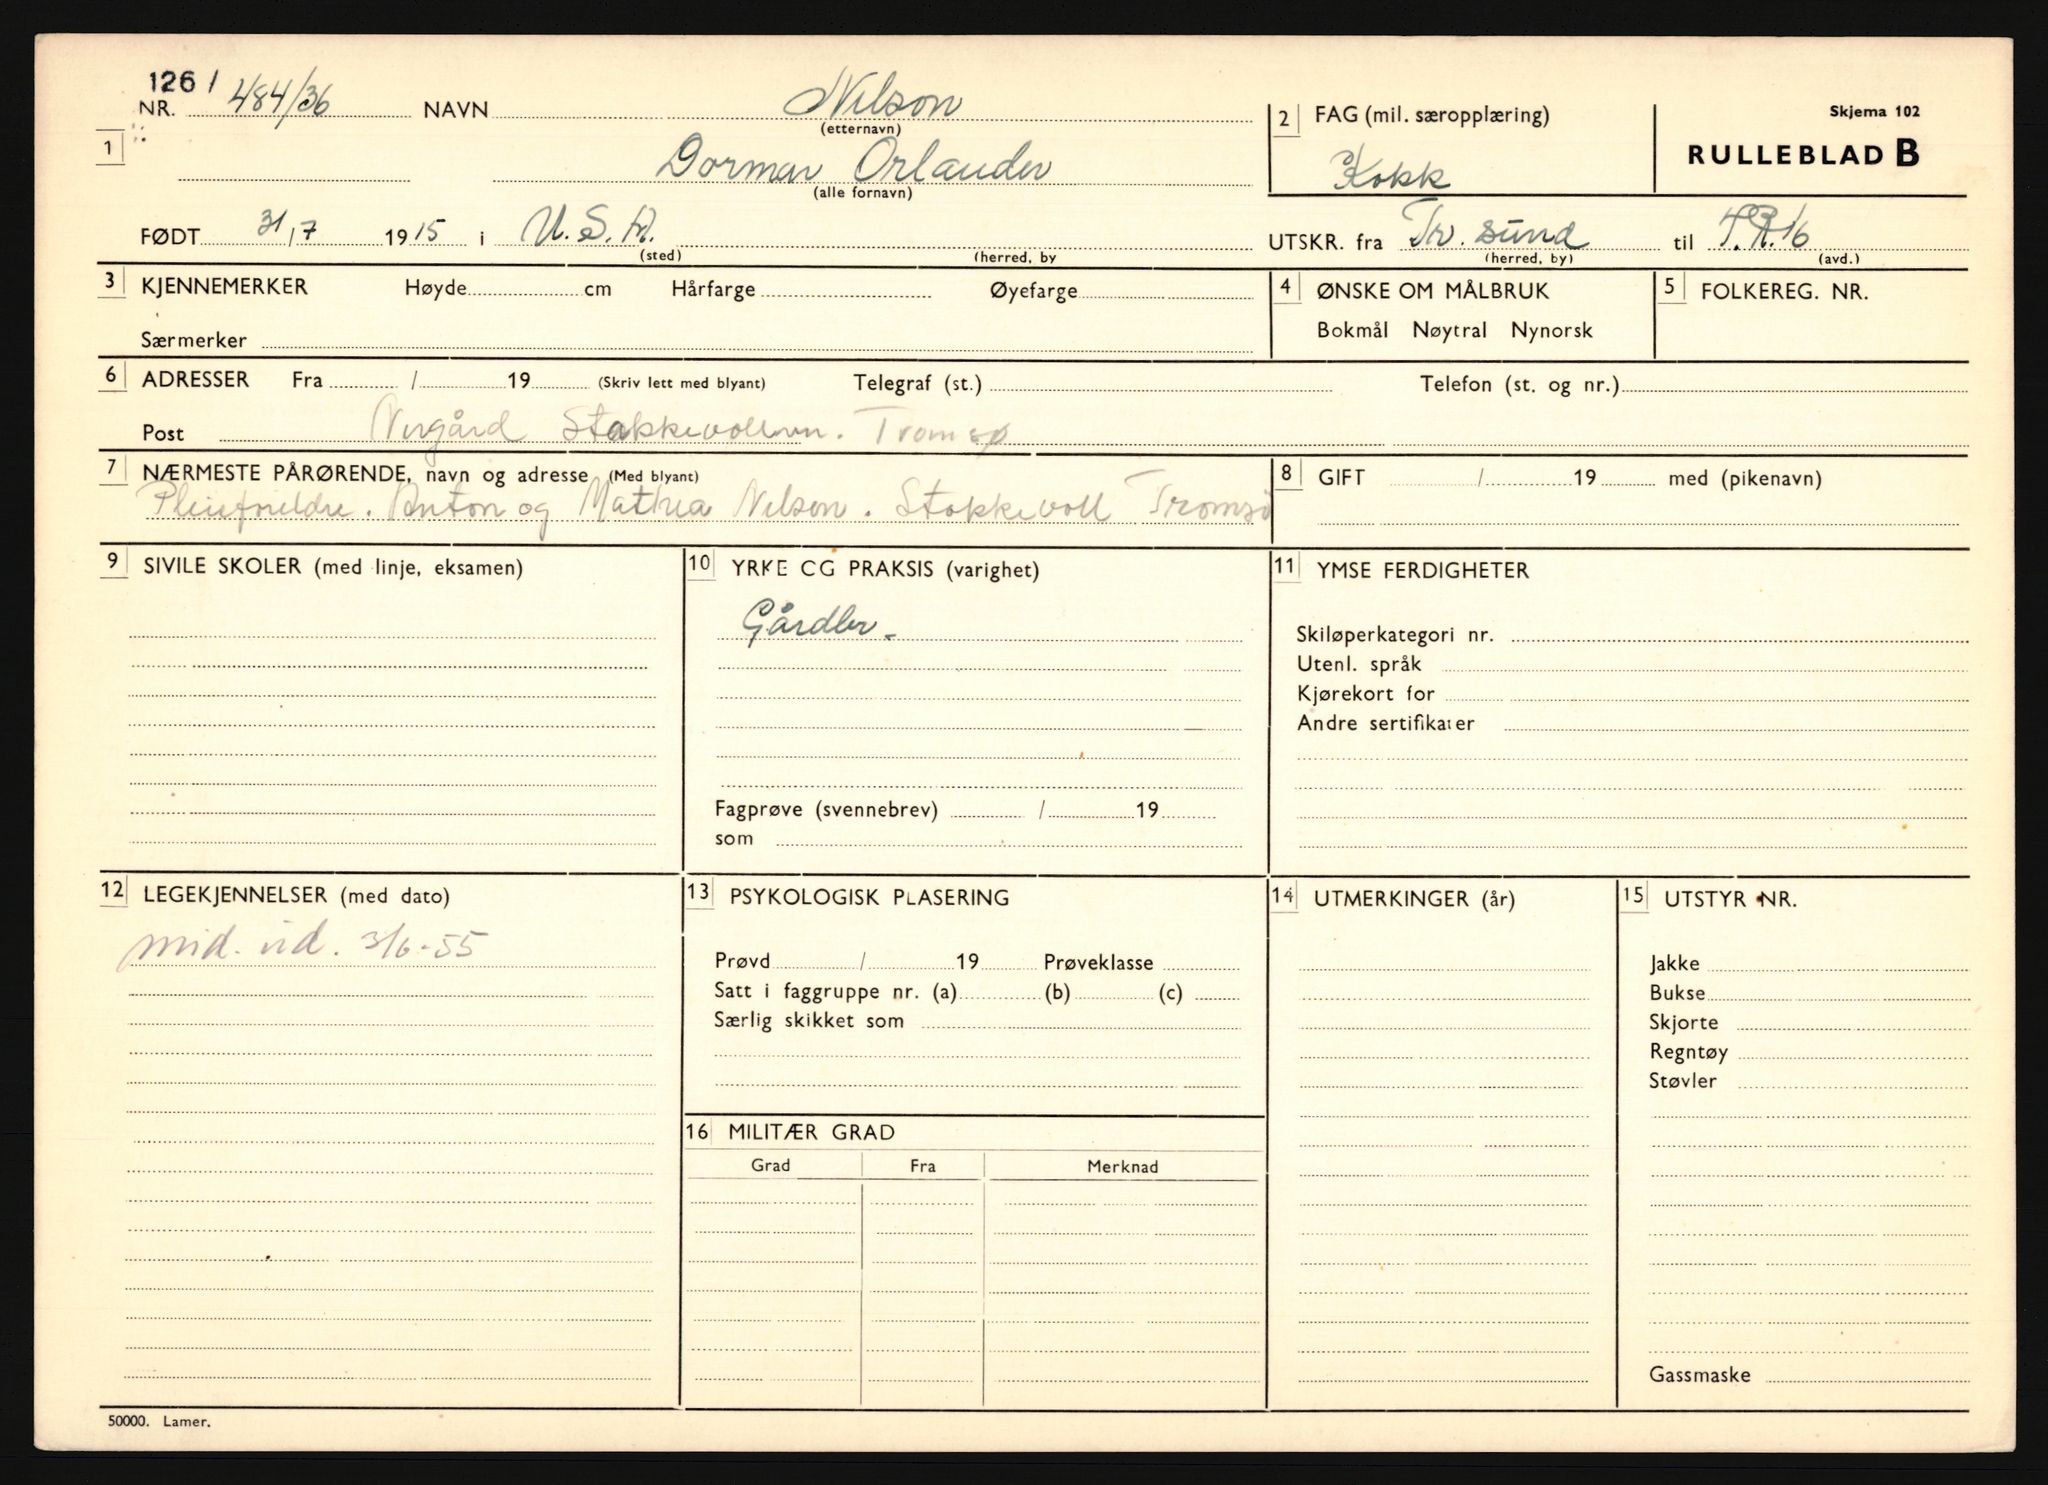 126 /
NR. 484/36 NAVN Nilson
(etternavn)
2 FAG (mil. særopplæring)
Skjema 102
RULLEBLAD B
1
Dormar Orlander
(alle fornavn)
Kokk
FØDT 31/7 1915 i U.S.A.
(sted) (herred, by
UTSKR. fra Tr. sund til T.R.16
(herred, by) (avd.)
3 KJENNEMERKER Høyde cm Hårfarge Øyefarge
Særmerker
4 ØNSKE OM MÅLBRUK
Bokmål Nøytral Nynorsk
5 FOLKEREG. NR.
6 ADRESSER Fra / 19 (Skriv lett med blyant) Telegraf (st.) Telefon (st. og nr.)
Post Nergård Stakkevollvn. Tromsø
7 NÆRMESTE PÅRØRENDE, navn og adresse (Med blyant)
Pleieforeldre. Anton og Mathea Nilson. Stakkevoll Tromsø
8 GIFT / 19 med (pikenavn)
9 SIVILE SKOLER (med linje, eksamen)
10 YRKE OG PRAKSIS (varighet)
Gårdbr.
Fagprøve (svennebrev) / 19
som
11 YMSE FERDIGHETER
Skiløperkategori nr.
Utenl. språk
Kjørekort for
Andre sertifikater
12 LEGEKJENNELSER (med dato)
mid. ud. 3/6-55
13 PSYKOLOGISK PLASERING
Prøvd / 19 Prøveklasse
Satt i faggruppe nr. (a) (b) (c)
Særlig skikket som
14 UTMERKINGER (år)
15 UTSTYR NR.
Jakke
Bukse
Skjorte
Regntøy
Støvler
Gassmaske
16 MILITÆR GRAD
Grad Fra Merknad
50000. Lamer.